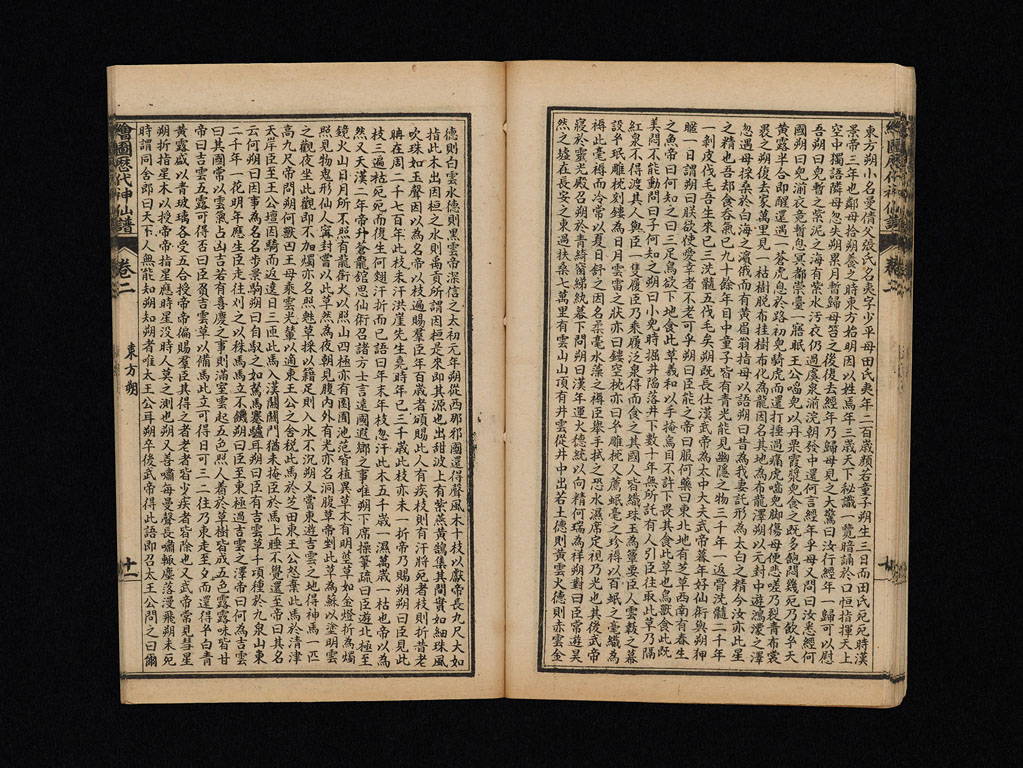 東方朔小名曼倩父張氏名夷字少平母田氏夷年二百歲顏若童子朔生三日而田氏死死時漢
景帝三年也鄰母拾朔養之時東方始明因以姓焉年三歲天下祕讖一覽暗誦於口恒指揮天上
空中獨語隣母忽失朔累月暫歸母笞之後復去經年乃歸母見之大驚曰汝行經年一歸可以慰
吾朔曰兒暫之紫泥之海有紫水污衣仍過虞泉湔浣朝發中還何言經年乎母又問曰汝悉經何
國朔曰兒湔衣竟暫息冥都崇臺一寤眠王公啗兒以丹栗霞漿兒食之既多飽悶幾死乃飲玄天
黃露半合即醒還遇一蒼虎息於路初兒騎虎而還打捶過痛虎嚙兒脚傷母便悲嗟乃裂青布裳
裹之朔復去家萬里見一枯樹脫布挂樹布化為龍因名其地為布龍澤朔以元封中遊鴻濛之澤
忽遇母採桑於白海之濱俄而有黃眉翁指母以語朔曰昔為我妻託形為太白之精今汝亦此星
之精也吾却食吞氣已九十餘年目中童子皆有青光能見幽隱之物三千年一返骨洗髓二千年
一剝皮伐毛吾生來已三洗髓五伐毛矣朔既長仕漢武帝為太中大夫武帝暮年好仙術與朔狎
暱一日謂朔曰朕欲使愛幸者不老可乎朔曰臣能之帝曰服何藥曰東北地有芝草西南有春生
之魚帝曰何知之曰三足烏欲下地食此草羲和以手掩烏目不許下畏其食此草也鳥獸食此既
美悶不能動問曰子何知之朔曰小兒時掘井陷落井下數十年無所託有人引臣往取此草乃隔
紅泉不得渡其人與臣一隻履臣乃乘履泛泉得而食之其國人皆織珠玉為簟要臣人雲韍之幕
設玄珉雕枕刻鏤為日月雲雷之狀亦曰鏤空枕亦曰玄雕枕又薦岷毫之珍褥以百岷之毫織為
褥此毫褥而冷常以夏日舒之因名柔毫水藻之褥臣舉手拭之恐水濕席定視乃光也其後武帝
寢於靈光殿召朔於青綺窗綈紈幕下問朔曰漢年運火德統以何精何瑞為祥朔對曰臣常遊昊
然之墟在長安之東過扶桑七萬里有雲山山頂有井雲從井中出若土德則黃雲火德則赤雲金
德則白雲水德則黑雲帝深信之太初元年朔從西那邪國還得聲風木十枝以獻帝長九尺大如
指此木出因桓之水則禹貢所謂因桓是來即其源也出甜波上有紫燕黃鵠集其間實如細珠風
吹珠如玉聲因以為名帝以枝遍賜羣臣年百歲者頒賜此人有疾枝則有汗將死者枝則折昔老
聃在周二千七百年此枝未汗洪崖先生堯時年已三千歲此枝亦未一折帝乃賜朔朔曰臣見此
枝三遍枯死死而復生何翅汗折而已語曰年未年枝忽汗此木五千歲一濕萬歲一枯也帝以為
然又天漢二年帝升蒼龍舘思仙術召諸方士言遠國遐鄉之事唯朔下席操筆疏曰臣遊北極至
鏡火山日月所不照有龍銜火以照山四極亦有園圃池苑皆植異草木有明莖草如金燈折為燭
照見物鬼形仙人甯封嘗以此草然為夜朝見腹內外有光亦名洞腹草帝剉此草為蘇以塗明雲
之觀夜坐此觀即不加燭亦名照魅草採以籍足則入水不沉朔又嘗東遊吉雲之地得神馬一匹
高九尺帝問朔何獸曰王母乘雲光輦以適東王公之舍稅此馬於芝田東王公怒棄此馬於清津
天岸臣至王公壇因騎而返遶日三匝此馬入漢關關門猶未掩臣於馬上睡不覺還至帝曰其名
云何朔曰因事為名名步景駒朔曰自馭之如駑馬蹇驢耳朔曰臣有吉雲草千頃種於九泉山東
二千年一花明年應生臣走往刈之以秣馬馬立不饑朔曰臣至東極過吉雲之澤帝曰何為吉雲
曰其國常以雲氣占凶吉若有喜慶之事則滿室雲起五色照人着於草樹皆成五色露露味皆甘
帝曰吉雲五露可得否曰臣負吉雲草以備馬此立可得日可三二往乃東走至夕而還得玄白青
黃露盛以青玻璃各受五合授帝帝徧賜羣臣其得之者老者皆少疾者皆除也又武帝常見彗星
朔折指星木以授帝帝指星應時星沒時人莫之測也朔又善嘯每曼聲長嘯輒塵落漫飛朔未死
時謂同舍郎曰天下人無能知朔知朔者唯太王公耳朔卒後武帝得此語即召太王公問之曰爾
繪圖歷代神仙譜
卷二
東方朔
十一